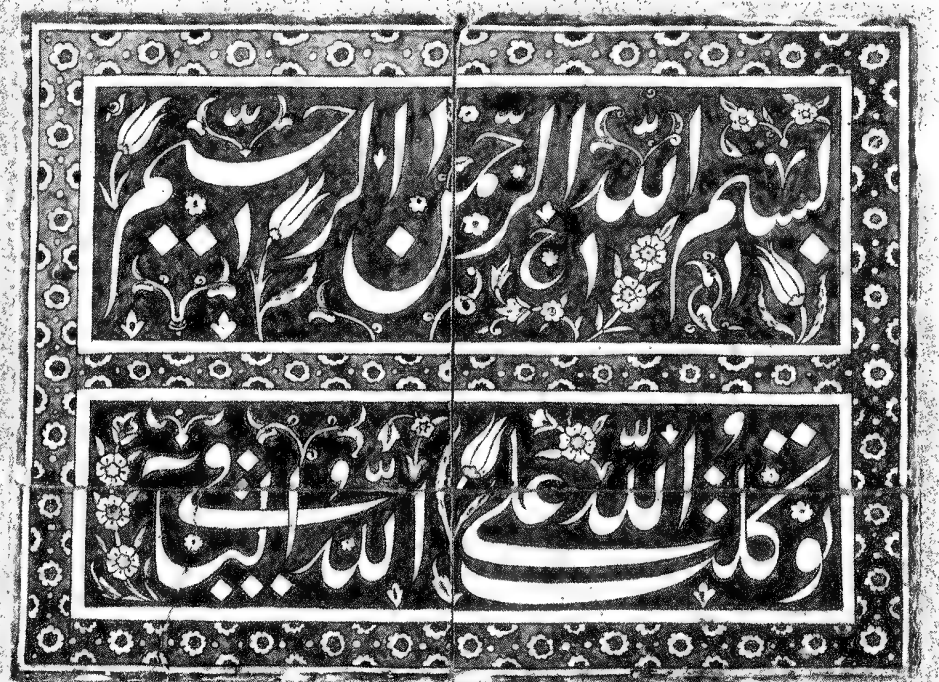 بسم الله الرحمن الرحيم
توكلت على الله